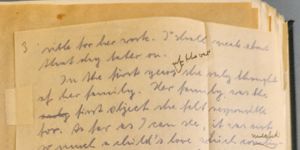 3 for her work. I shall speak about
that day later on.
of her
In the first years she only thought
of her family. Her family was the
first object she felt responsible
for. As far as I can see, it was not
so much a child's love which